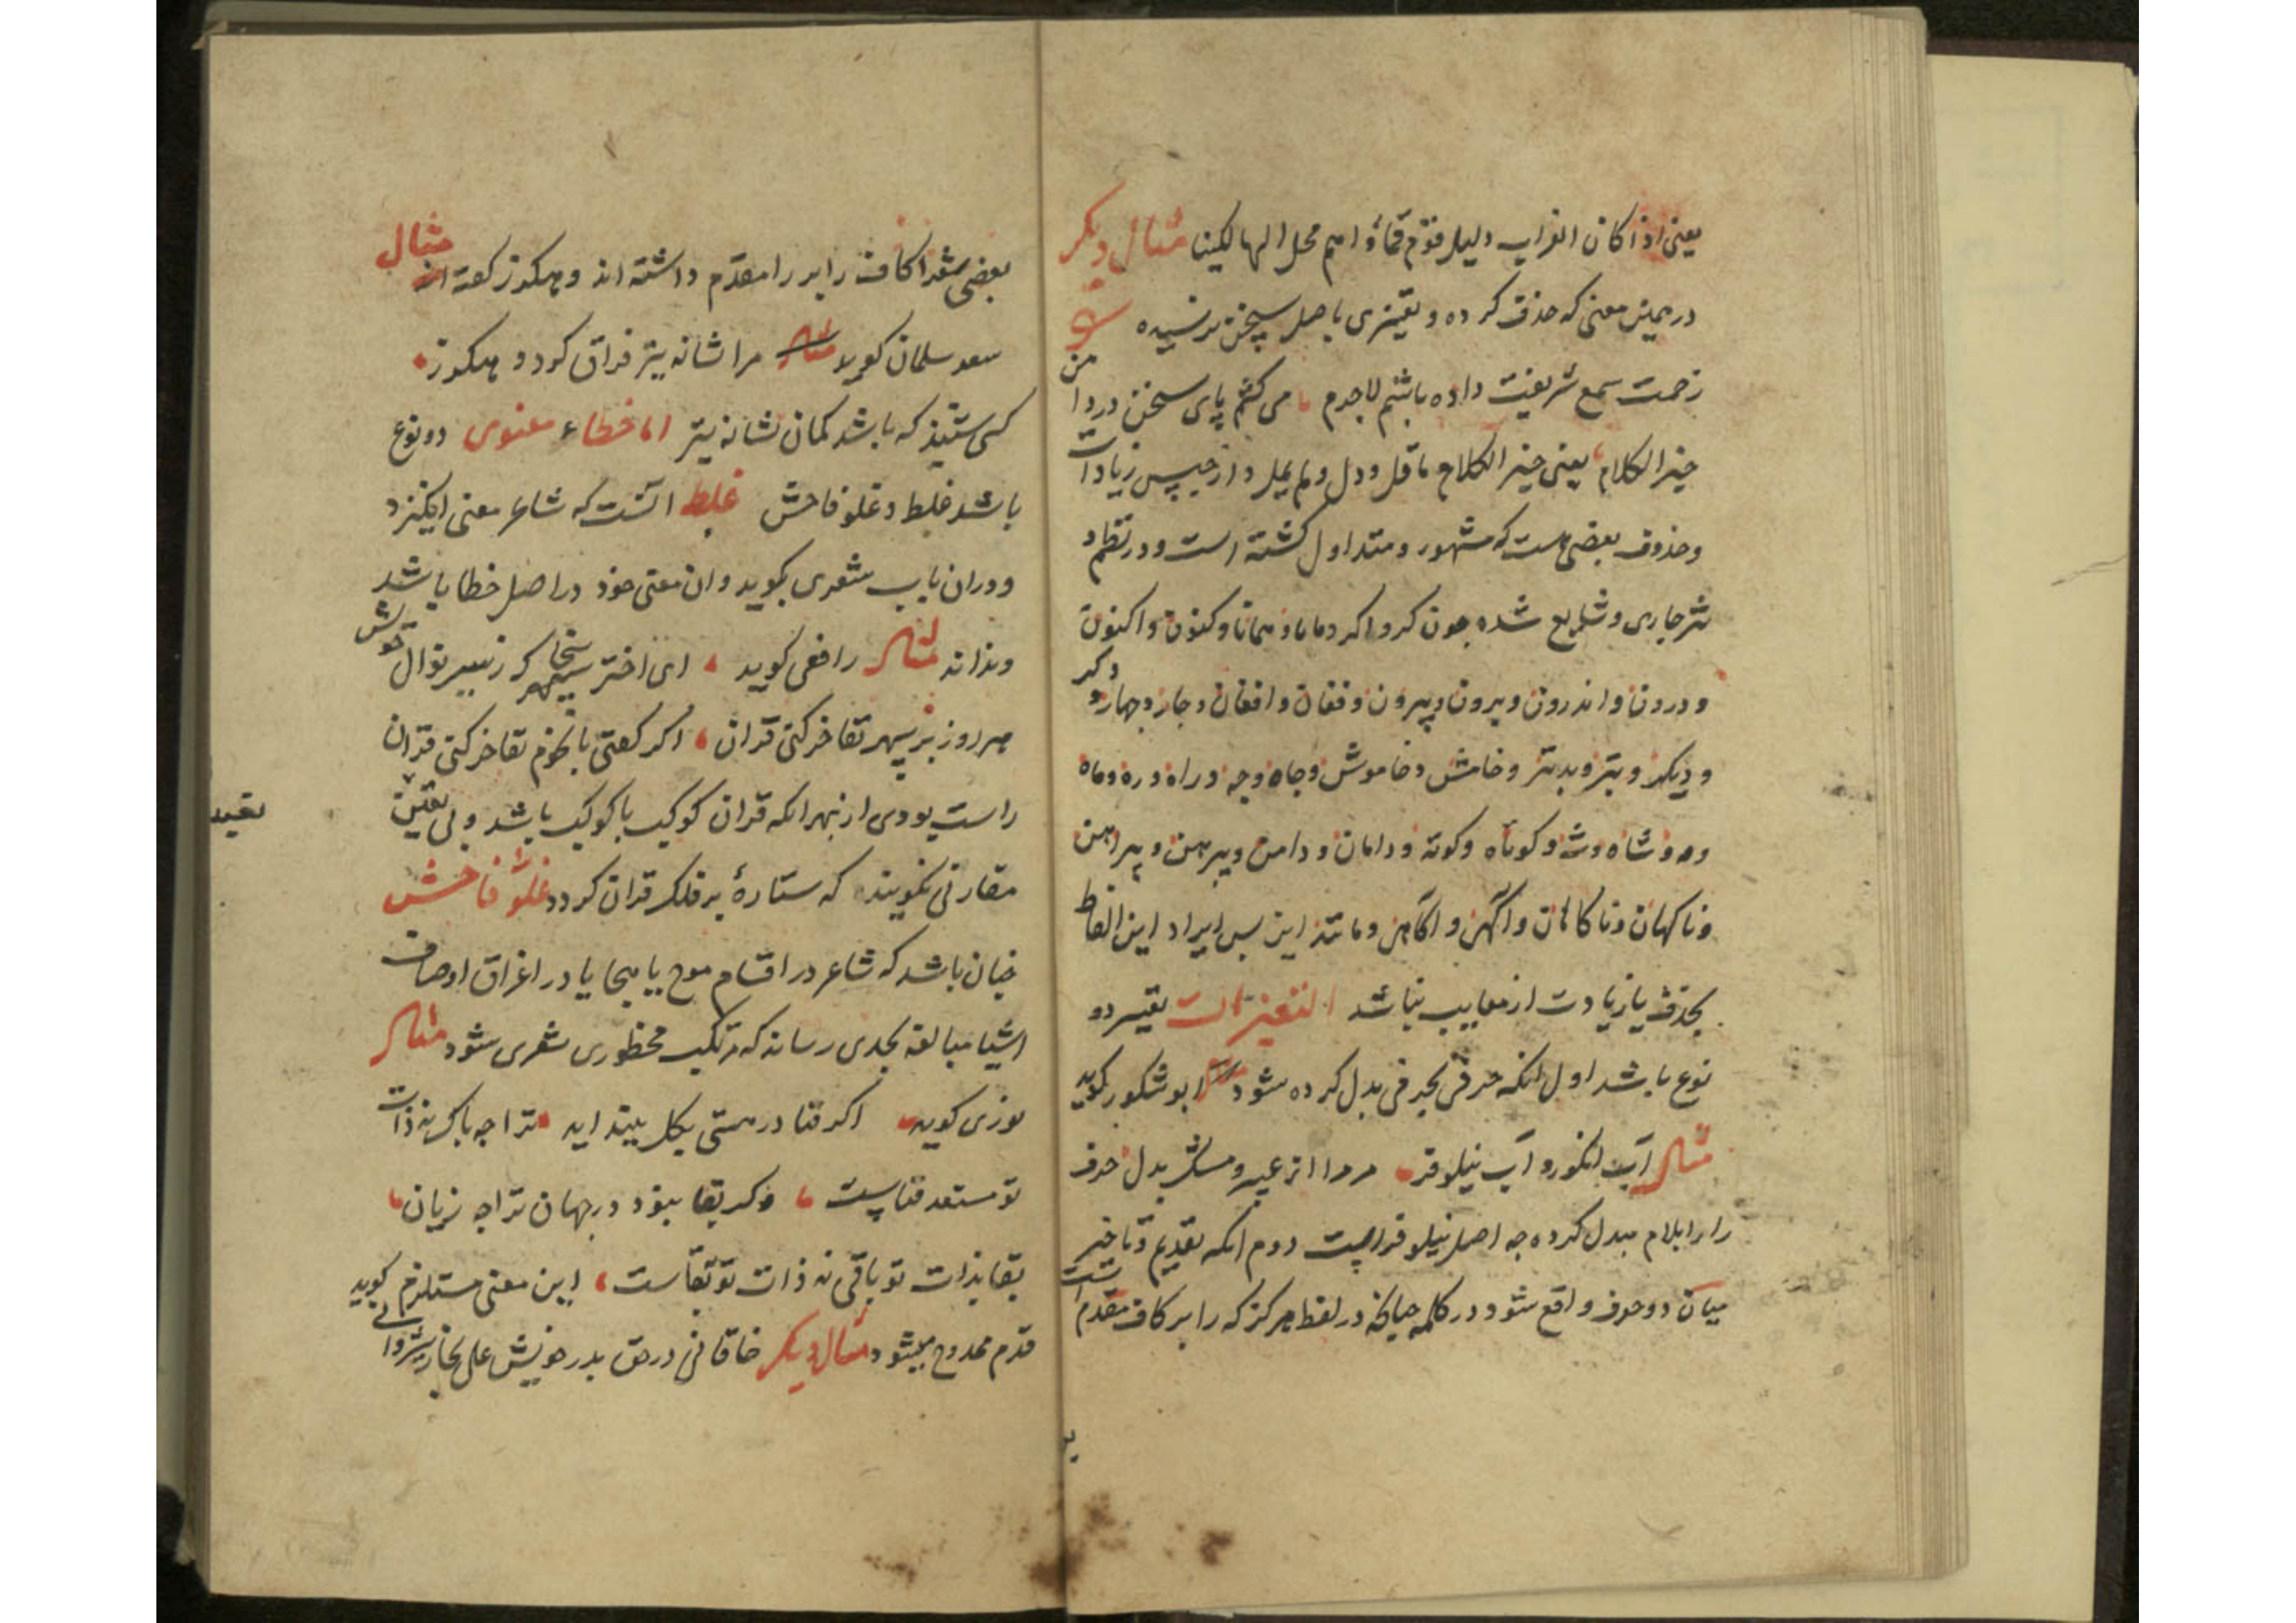 یعنی اذا کان الغراب دلیل قوم فماؤاهم محل الهالکینا مثال دیکر
در همین معنی که حذف کرده و تغییری باصل سخن نرسیده
زحمت سمع شریفت داده باشم لاجرم می کشم پای سخن در دامن
خیر الکلام یعنی خیر الکلام ما قل و دل ولم یمل و از جنس زیادات
و حذوف بعضی هست که مشهور و متداول کشته است و در نظم و
نثر جاری و شایع شده جون کر و اکر و مانا و همانا و کنون و اکنون
و درون و اندرون و برون و بیرون و فغان و افغان و جار و جهار و دکر
و دیکر و بتر و بدتر و خامش و خاموش و جاه و جه و راه و ره و ماه
و مه و شاه و شه و کوتاه و کوته و دامان و دامن و پیرهن و پیراهن
و ناکهان و ناکاهان و آکهن و آکاهن و مانند این بس ایراد این الفاظ
بحذف یا زیادت از معایب نباشد التغییرات تغییر دو
نوع باشد اول انکه حرفی بحرفی بدل کرده شود ابو شکور کوید
مثال آب انکور و آب نیلوفل مر مرا از عبیر و مشک بدل حرف
را را بلام مبدل کرده جه اصل نیلوفر است دوم انکه تقدیم و تاخیر
میان دو حرف واقع شود در کلمه جنانکه در لفظ هرکز که را بر کاف مقدم است
بعضی شعرا کاف را بر را مقدم داشته اند و هکرز کفته اند مثال
سعد سلمان کوید مرا نشانه تیر فراق کرد و هکرز
کسی شنید که باشد کمان نشانه تیر اما خطاء معنوی دو نوع
باشد غلط و غلو فاحش غلط انست که شاعر معنی انکیزد
و دران باب شعری بکوید و ان معنی خود در اصل خطا باشد
و نداند مثال رافعی کوید ای اختر سپهر سخا کز سپهر نوال خویش
هر روز بر سپهر تفاخر کنی قران اکر کفتی بانجم تفاخر کنی قران
راست بودی از بهر انکه قران کوکب با کوکب باشد و بی یقین
مقارنی نکویند که ستارهٔ بر فلک قران کرد و غلو فاحش
جنان باشد که شاعر در اقسام مدح یا هجا یا در اغراق اوصاف
اشیا مبالغه بحدی رساند که مرتکب محظوری شعری شود مثال
کوید اکر فنا در هستی بکل بینداید ترا جه باک نه ذات
تو مستعد فناست وکر بقا نبود در جهان ترا جه زیان
بقا بذات تو باقی نه ذات تو ببقاست این معنی مستلزم
قدم ممدوح میشود مثال دیکر خاقانی در حق بدر خویش علی نجار شروانی کوید